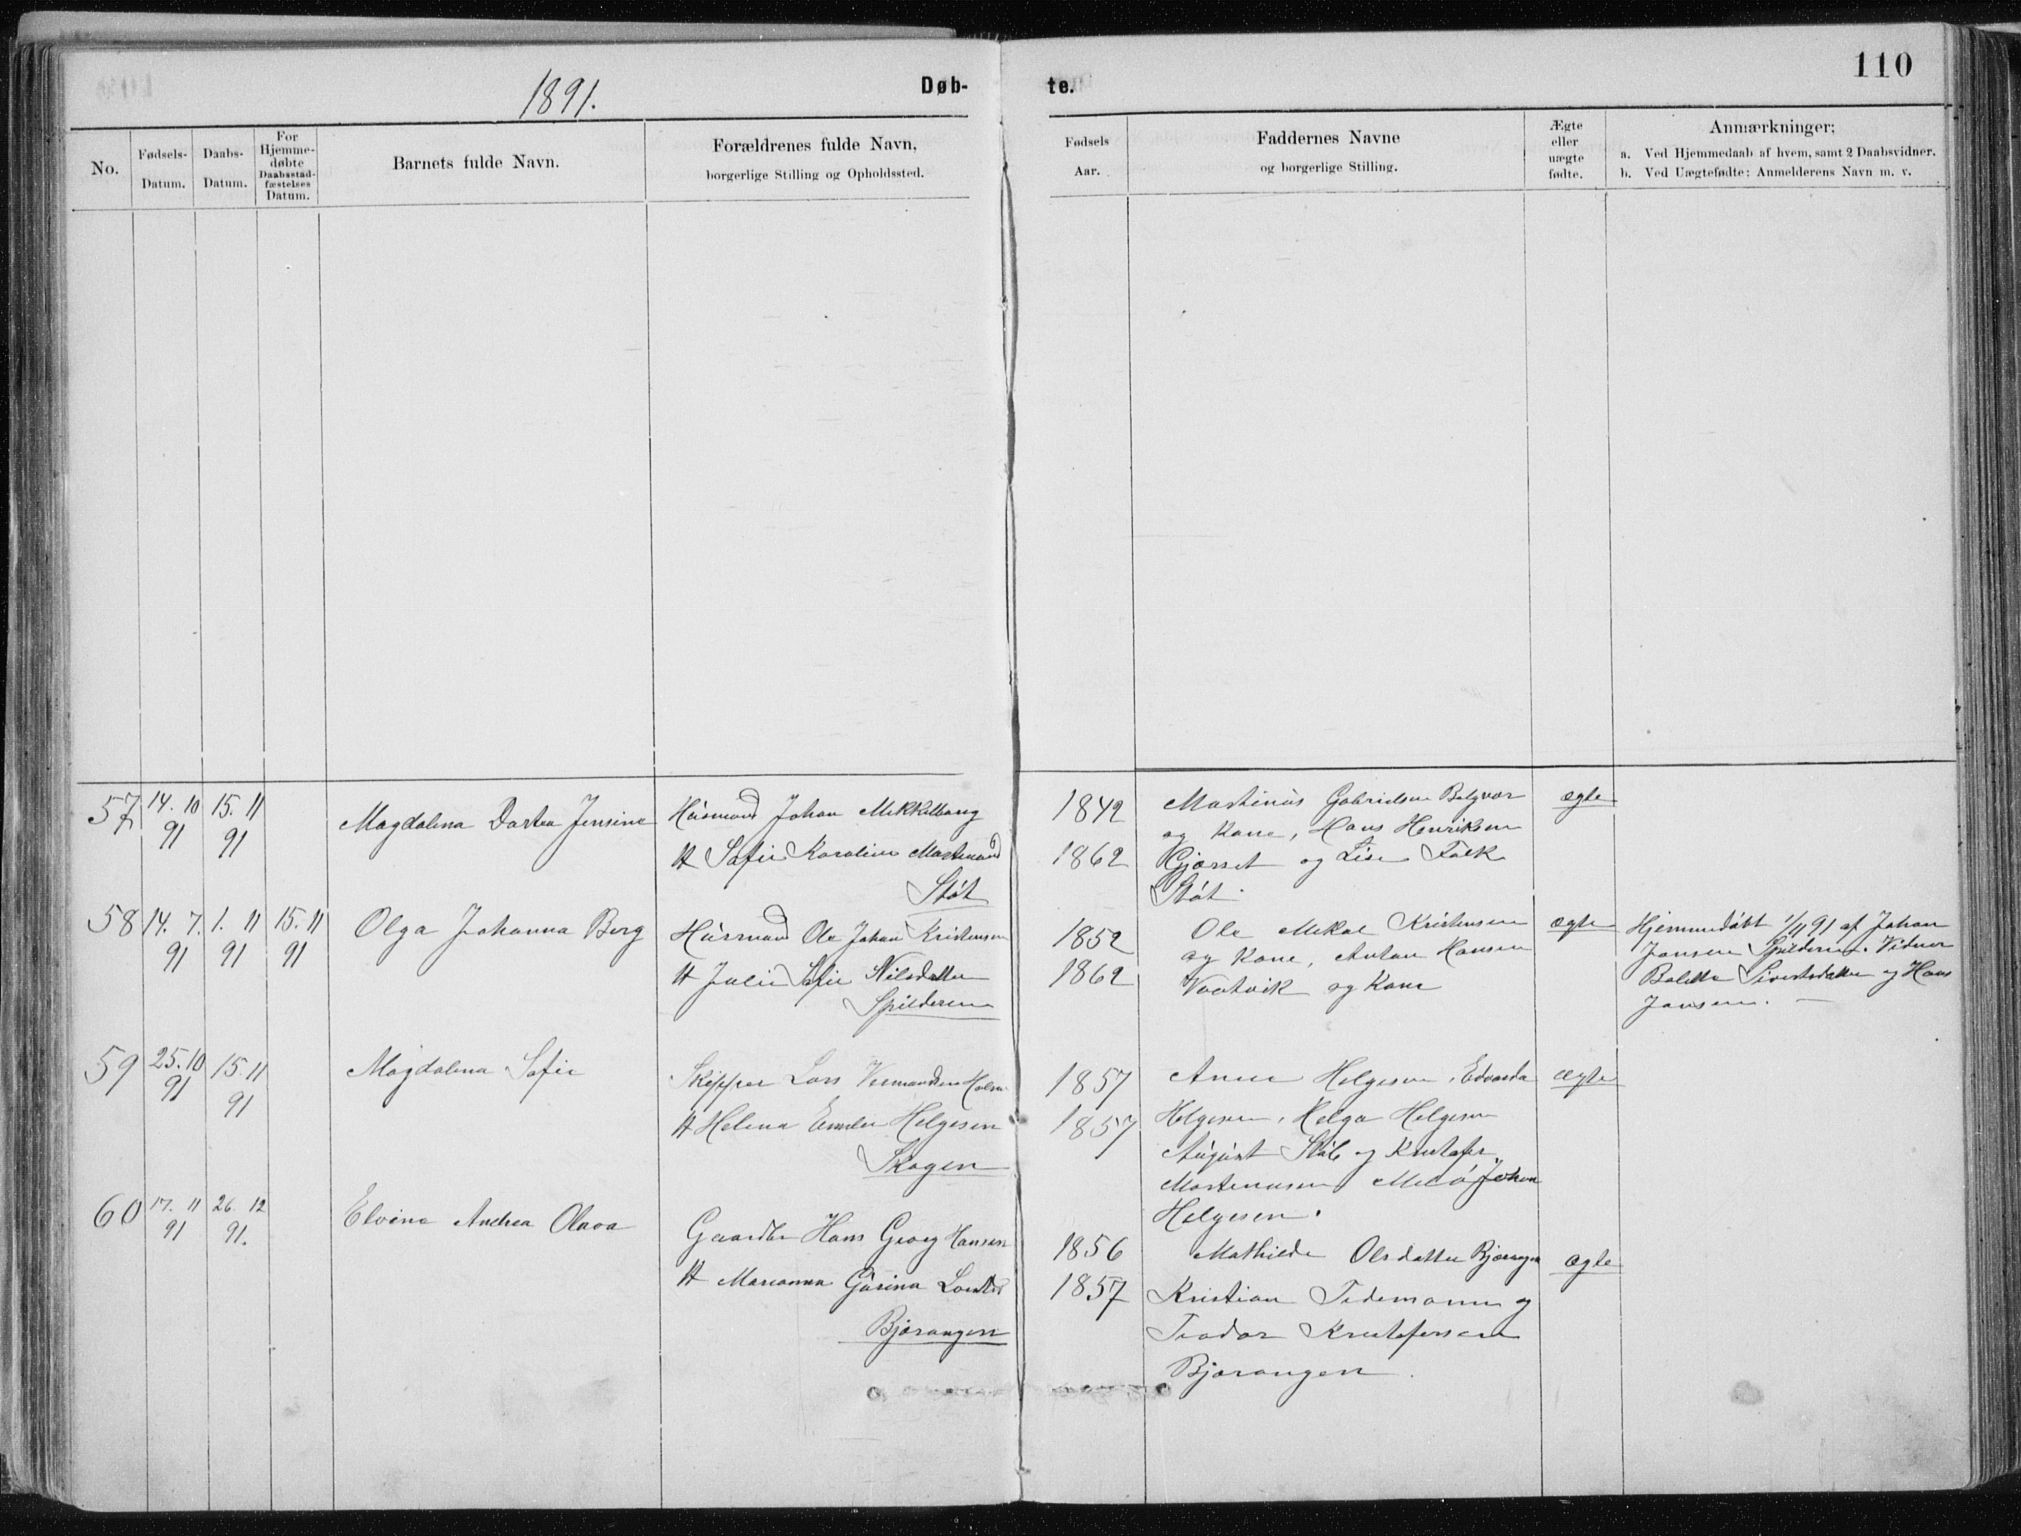 1891.
Døb-
te.
110
No.
Fødsels-
Datum.
Daabs-
Datum.
For
Hjemme-
døbte
Daabsstad-
fæstelses
Datum.
Barnets fulde Navn.
Forældrenes fulde Navn,
borgerlige Stilling og Opholdssted.
Fødsels
Aar.
Faddernes Navne
og borgerlige Stilling.
Ægte
eller
uægte
fødte.
Anmærkninger;
a. Ved Hjemmedaab af hvem, samt 2 Daabsvidner.
b. Ved Uægtefødte: Anmelderens Navn m. v.
57
14. 10
91
15. 11
91
Magdalena Dortea Jensine
Husmand Johan
H Sofie Karoline
Støt
1842
1862
Martinus Gabrielsen
og Kone, Hans Henriksen
og Lise Falk
Støt.
ægte
58
14. 7.
91
1. 11
91
15. 11
91
Olga Johanna Berg
Husmand Ole Johan Kristensen
H Julie Sofie Nilsdatter
Spilderen
1852
1862
Ole Mekal Kristensen
og Kone, Anton Hansen
og Kone
ægte
Hjemmedøbt 1/11 91 af Johan
Jansen Spilderen. Vidner
Sivertsdatter og Hans
Jansen.
59
25. 10
91
15. 11
91
Magdalena Sofie
Skipper Lars
H Helena Emilie Helgesen
Skogen
1857
1857
Anne Helgesen, Edvarda
Helgesen, Helga Helgesen
August og Kristofer
Martenusen Johan
Helgesen.
ægte
60
17. 11
91
26. 12
91.
Elvina Andrea Olava
Gaardbr Hans Georg Hansen
H Marianna Gurina
Bjærangen
1856
1857
Mathilde Olsdatter Bjærangen
Kristian Tidemann og
Teodor Kristofersen
Bjærangen.
ægte